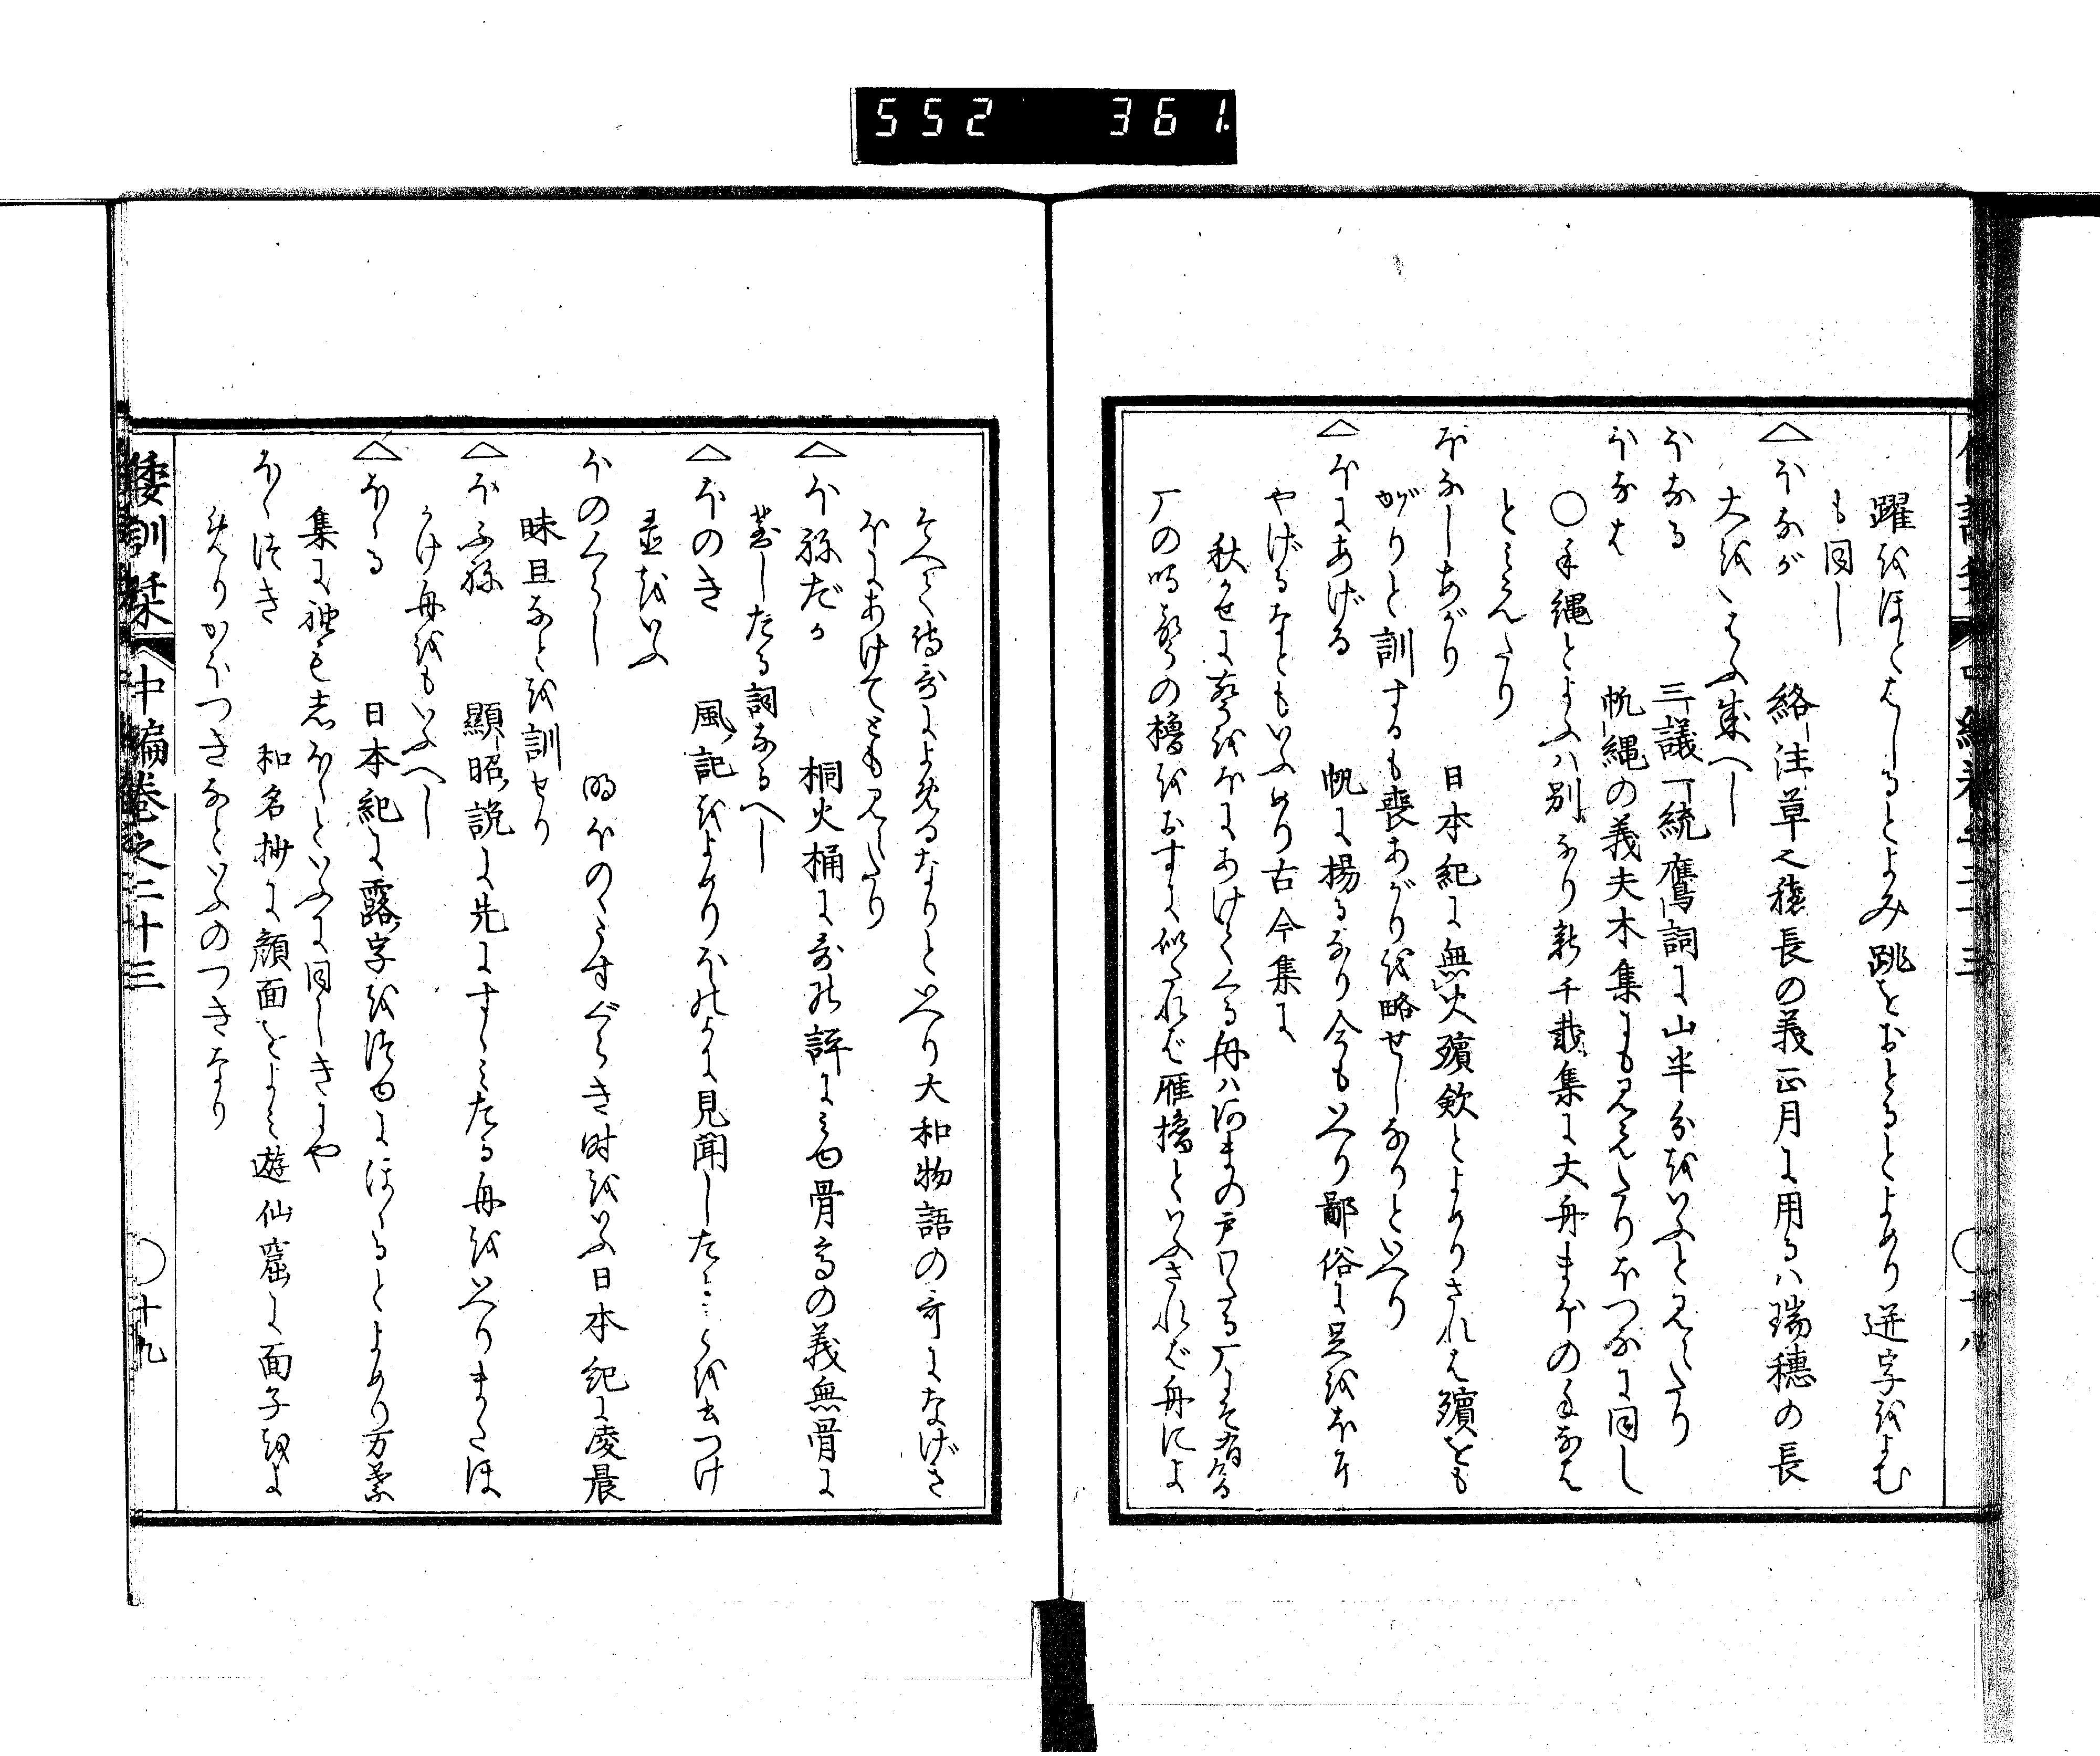 552 361.
躍をほとはしるとよみ跳をおとるとよめり迸字をよむ
も同し
ほなが 絡注草也穂長の義正月に用るハ瑞穂の長
大をいはふ成へし
ほなる 三議一統鷹詞に山半分をいふと見えたり
ほなは 帆縄の義夫木集にも見えたりほつなに同し
〇手縄とよふハ別なり新千載集に大舟まほの手なは
とみえたり
ほなしあがり 日本紀に無火殯斂とよめりされは殯をも
がりと訓するも喪あがりを略せしなりといへり
ほにあげる 帆に揚るなり今もいへり鄙俗に足をほに
やげるなともいふめり古今集に
秋かせに声をほにあけてくる舟ハ天の戸わたる厂にそ有ける
厂の鳴声の櫓をおすに似たれば雁櫓といふされば舟によ
そへて詩哥によめるなりといへり大和物語の哥になげき
ほにあけてとも見えたり
ほねだか 桐火桶に哥の評にみゆ骨高の義無骨に
対したる詞なるへし
ほのき 風記をよめりほのかに見聞したることを書つけ
置をいふ
ほのくらし 明ほのゝうすぐらき時をいふ日本紀に凌晨
昧旦なとを訓せり
ほふね 顕昭説に先にすゝみたる舟をいへりまたほ
かけ舟をもいふへし
ほゝる 日本紀に露字を佐由にほゝるとよめり万葉
集に袖もしほゝといふに同しきにや
ほゝつき 和名抄に顔面をよみ遊仙窟に面子をよ
めりかほつきなといふのつきなり
倭訓栞 中編巻之二十三 〇十九